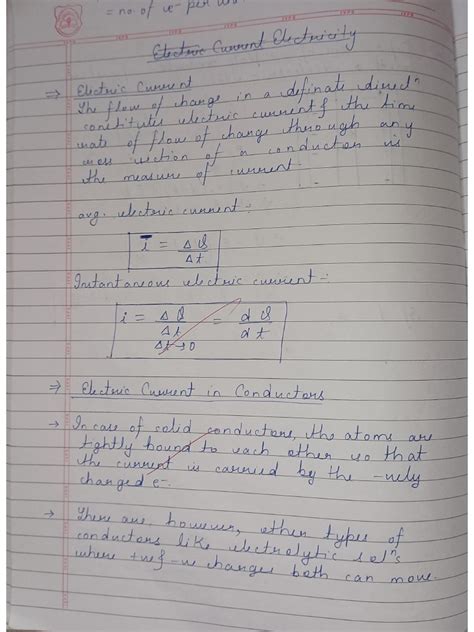 = no. of e- per
Electric Current Electricity
⇒ Electric Current
The flow of charge in a definate directn
constitutes electric current & the time
rate of flow of charge through any
cross section of a conductor is
the measure of current.
avg. electric current :-
i̅ = ΔQ/Δt
Instantaneous electric current :-
i = ΔQ/Δt = dQ/dt
Δt→0
⇒ Electric Current in Conductors
→ In case of solid conductors, the atoms are
tightly bound to each other so that
the current is carried by the -vely
charged e-.
→ There are, however, other types of
conductors like electrolytic soln's
where +ve & -ve charges both can move.